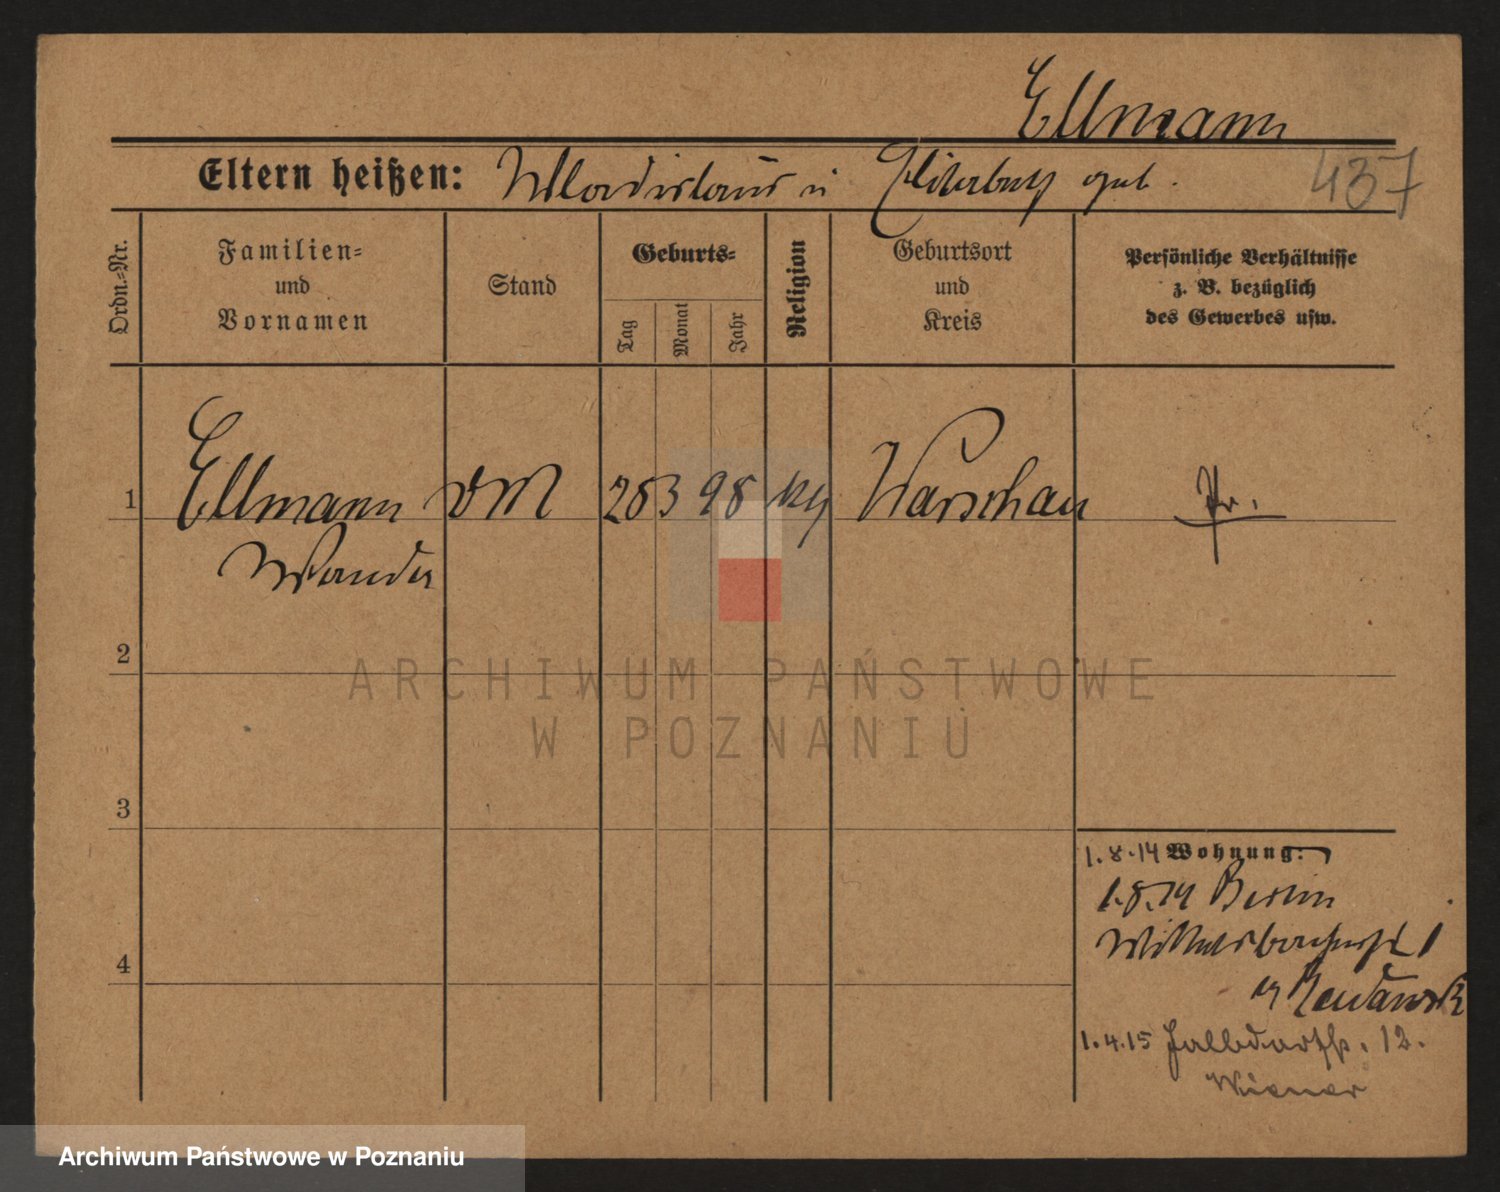 Ellmann
Eltern heißen: Wladislaus u Elisabeth geb.
437
Ordn.=Nr.
Familien=
und
Vornamen
Stand
Geburts=
Tag
Monat
Jahr
Religion
Geburtsort
und
Kreis
Persönliche Verhältnisse
z. B. bezüglich
des Gewerbes usw.
1 Ellmann 28 3 98 Warschau Pr.
Wanda
2
ARCHIWUM PAŃSTWOWE
W POZNANIU
3
1.8.14 Wohnung:
1.8.14 Berlin
4
1
1.4.15 12.
Wiener
Archiwum Państwowe w Poznaniu